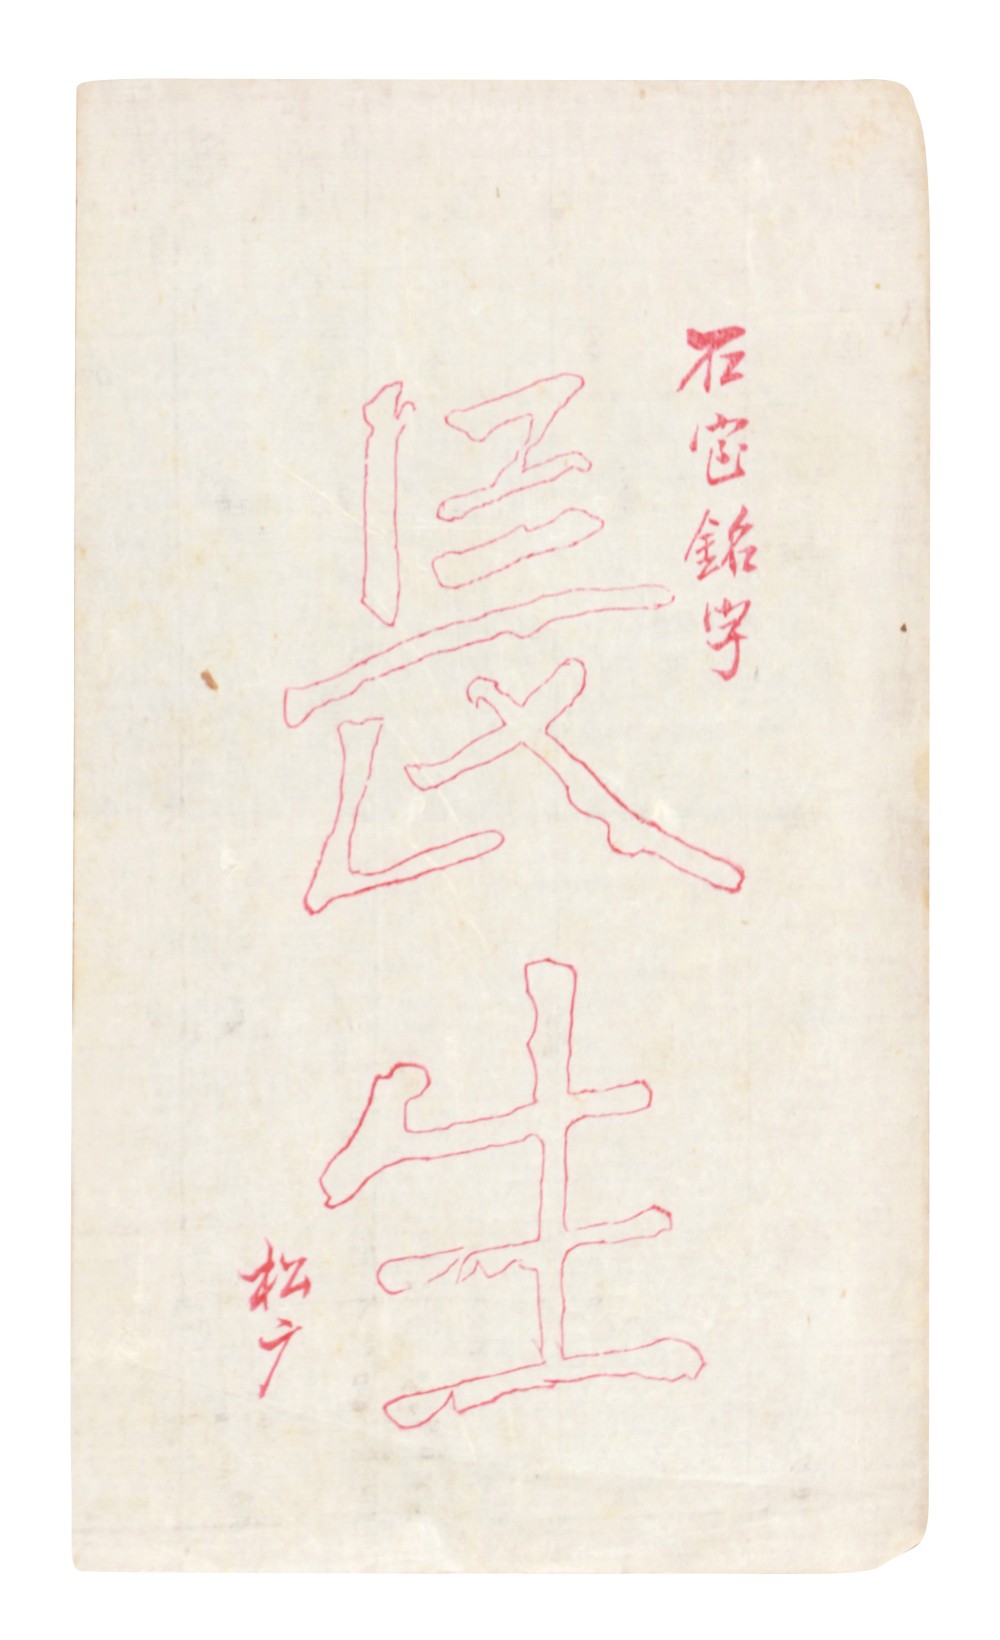 石室銘字
長生
松广